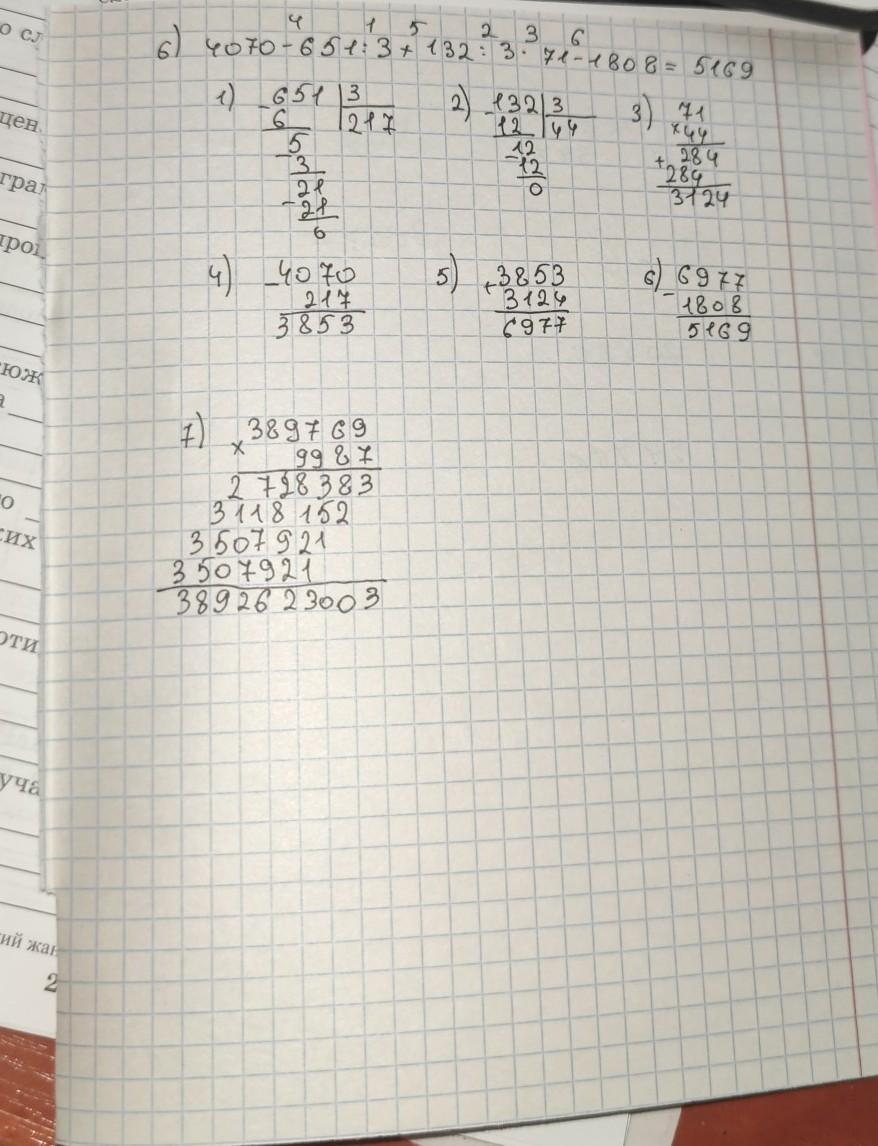 о сл
цен
грам
проц
сюж
а
о
ких
оти
уча
кий жан
2
4 1 5 2 3 6
6) 4070-651:3+132:3·71-1808=5169
1) -651|3
6 217
5
-3
21
-21
6
2) -132|3
12 44
12
-12
0
3) 71
×44
+284
284
3124
4) -4070
217
3853
5) +3853
3124
6977
6) -6977
1808
5169
7) ×389769
9987
2728383
3118152
3507921
3507921
3892623003